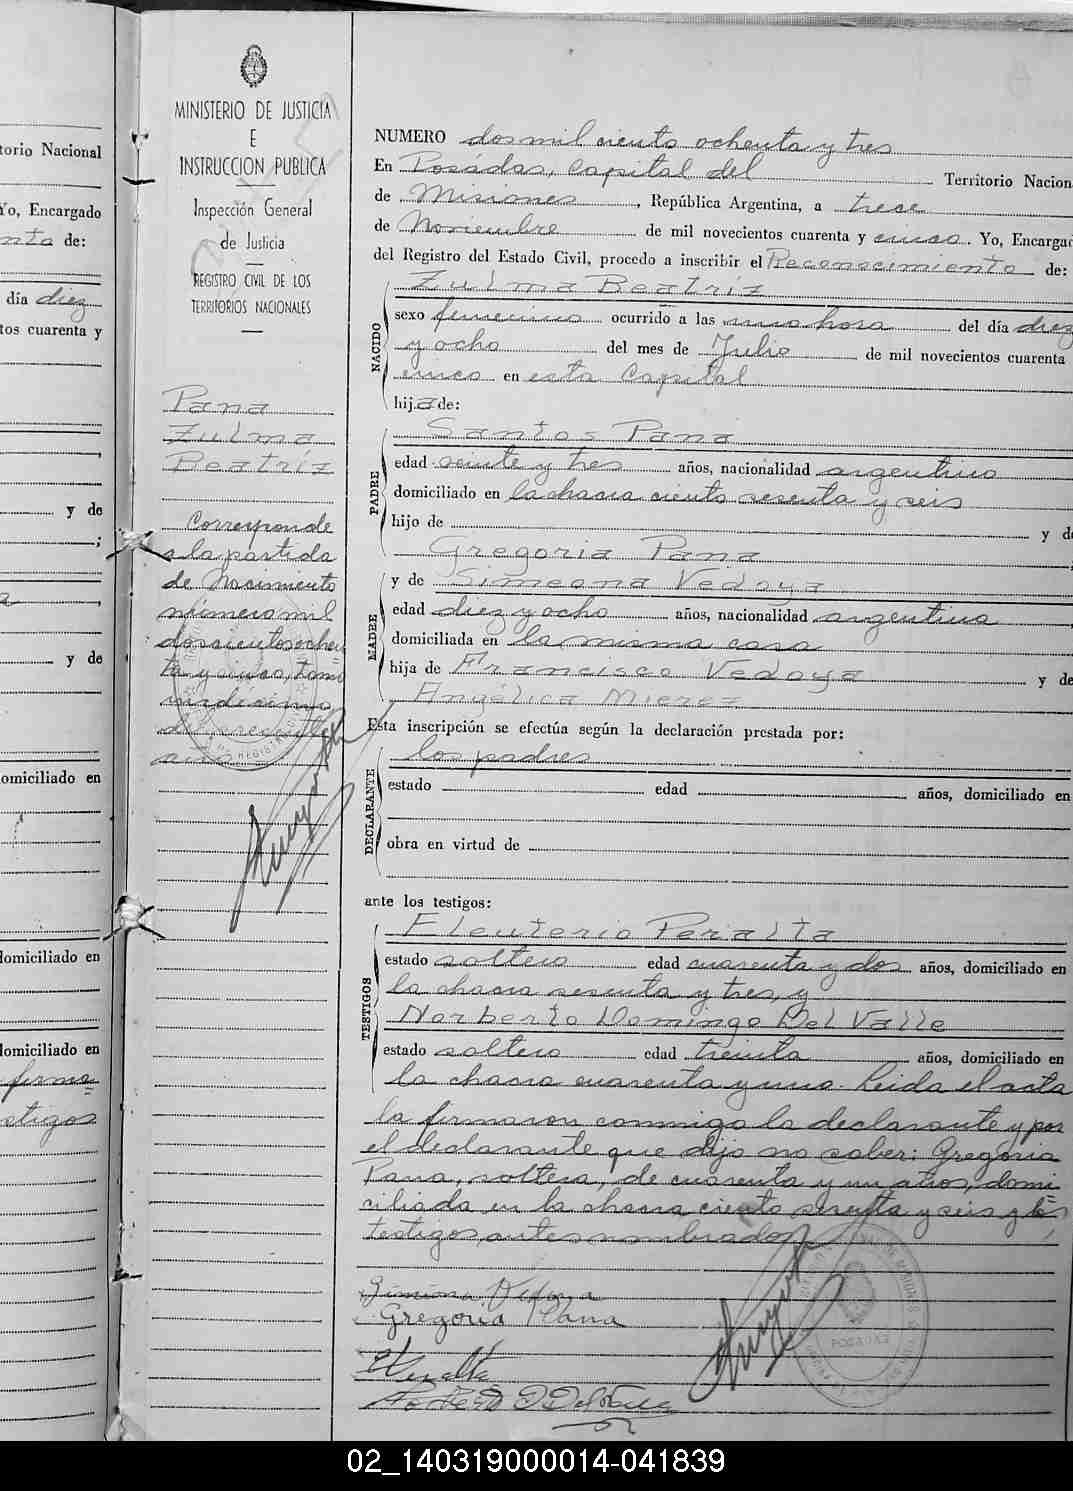 torio Nacional
Yo, Encargado
nta de:
día diez
tos cuarenta y
y de
;
a
y de
omiciliado en
domiciliado en
domiciliado en
firma
stigos
MINISTERIO DE JUSTICIA
E
INSTRUCCION PUBLICA
Inspección General
de Justicia
REGISTRO CIVIL DE LOS
TERRITORIOS NACIONALES
Pana
Zulma
Beatríz
Corresponde
a la partida
de Nacimiento
número mil
doscientos ochen
ta y cinco, tomo
del presente
año
NUMERO dos mil ciento ochenta y tres
En Posadas, Capital del Territorio Nacion
de Misiones, República Argentina, a trece
de Noviembre de mil novecientos cuarenta y cinco. Yo, Encargad
del Registro del Estado Civil, procedo a inscribir el Reconocimiento de:
NACIDO
Zulma Beatriz
sexo femenino ocurrido a las una hora del día diez
y ocho del mes de Julio de mil novecientos cuarenta
cinco en esta Capital
hija de:
PADRE
Santos Pana
edad veinte y tres años, nacionalidad argentino
domiciliado en la chacra ciento sesenta y seis
hijo de y de
Gregoria Pana ;
MADRE
y de Simeona Vedoya
edad diez y ocho años, nacionalidad argentina
domiciliada en la misma casa
hija de Francisco Vedoya y de
Angélica Mierez
Esta inscripción se efectúa según la declaración prestada por:
DECLARANTE
los padres
estado edad años, domiciliado en
obra en virtud de
ante los testigos:
TESTIGOS
Eleuterio Peralta
estado soltero edad cuarenta y dos años, domiciliado en
la chacra sesenta y tres, y
Norberto Domingo Del Valle
estado soltero edad treinta años, domiciliado en
la chacra cuarenta y una. Leida el acta
la firmaron conmigo la declarante y por
el declarante que dijo no saber: Gregoria
Pana, soltera, de cuarenta y un años, domi=
ciliada en la chacra ciento sesenta y seis y los
testigos antes nombrados
Simiona Vedoya
Gregoria Pana
Peralta
POSADAS
02_140319000014-041839